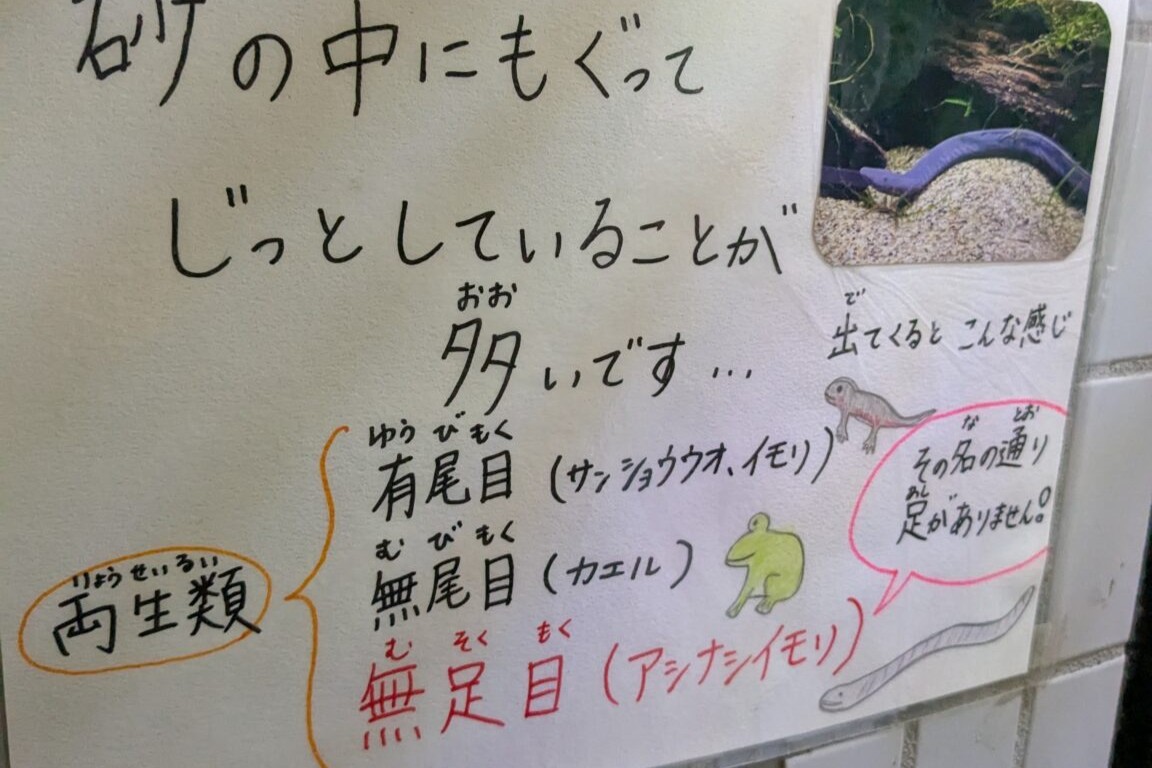 砂の中にもぐって
じっとしていることが
おお
多いです…
で
出てくると こんな感じ
ゆう び もく
有尾目 (サンショウウオ、イモリ)
な とお
その名の通り
あし
足がありません。
む び もく
無尾目 (カエル)
りょうせいるい
両生類
む そく もく
無足目 (アシナシイモリ)